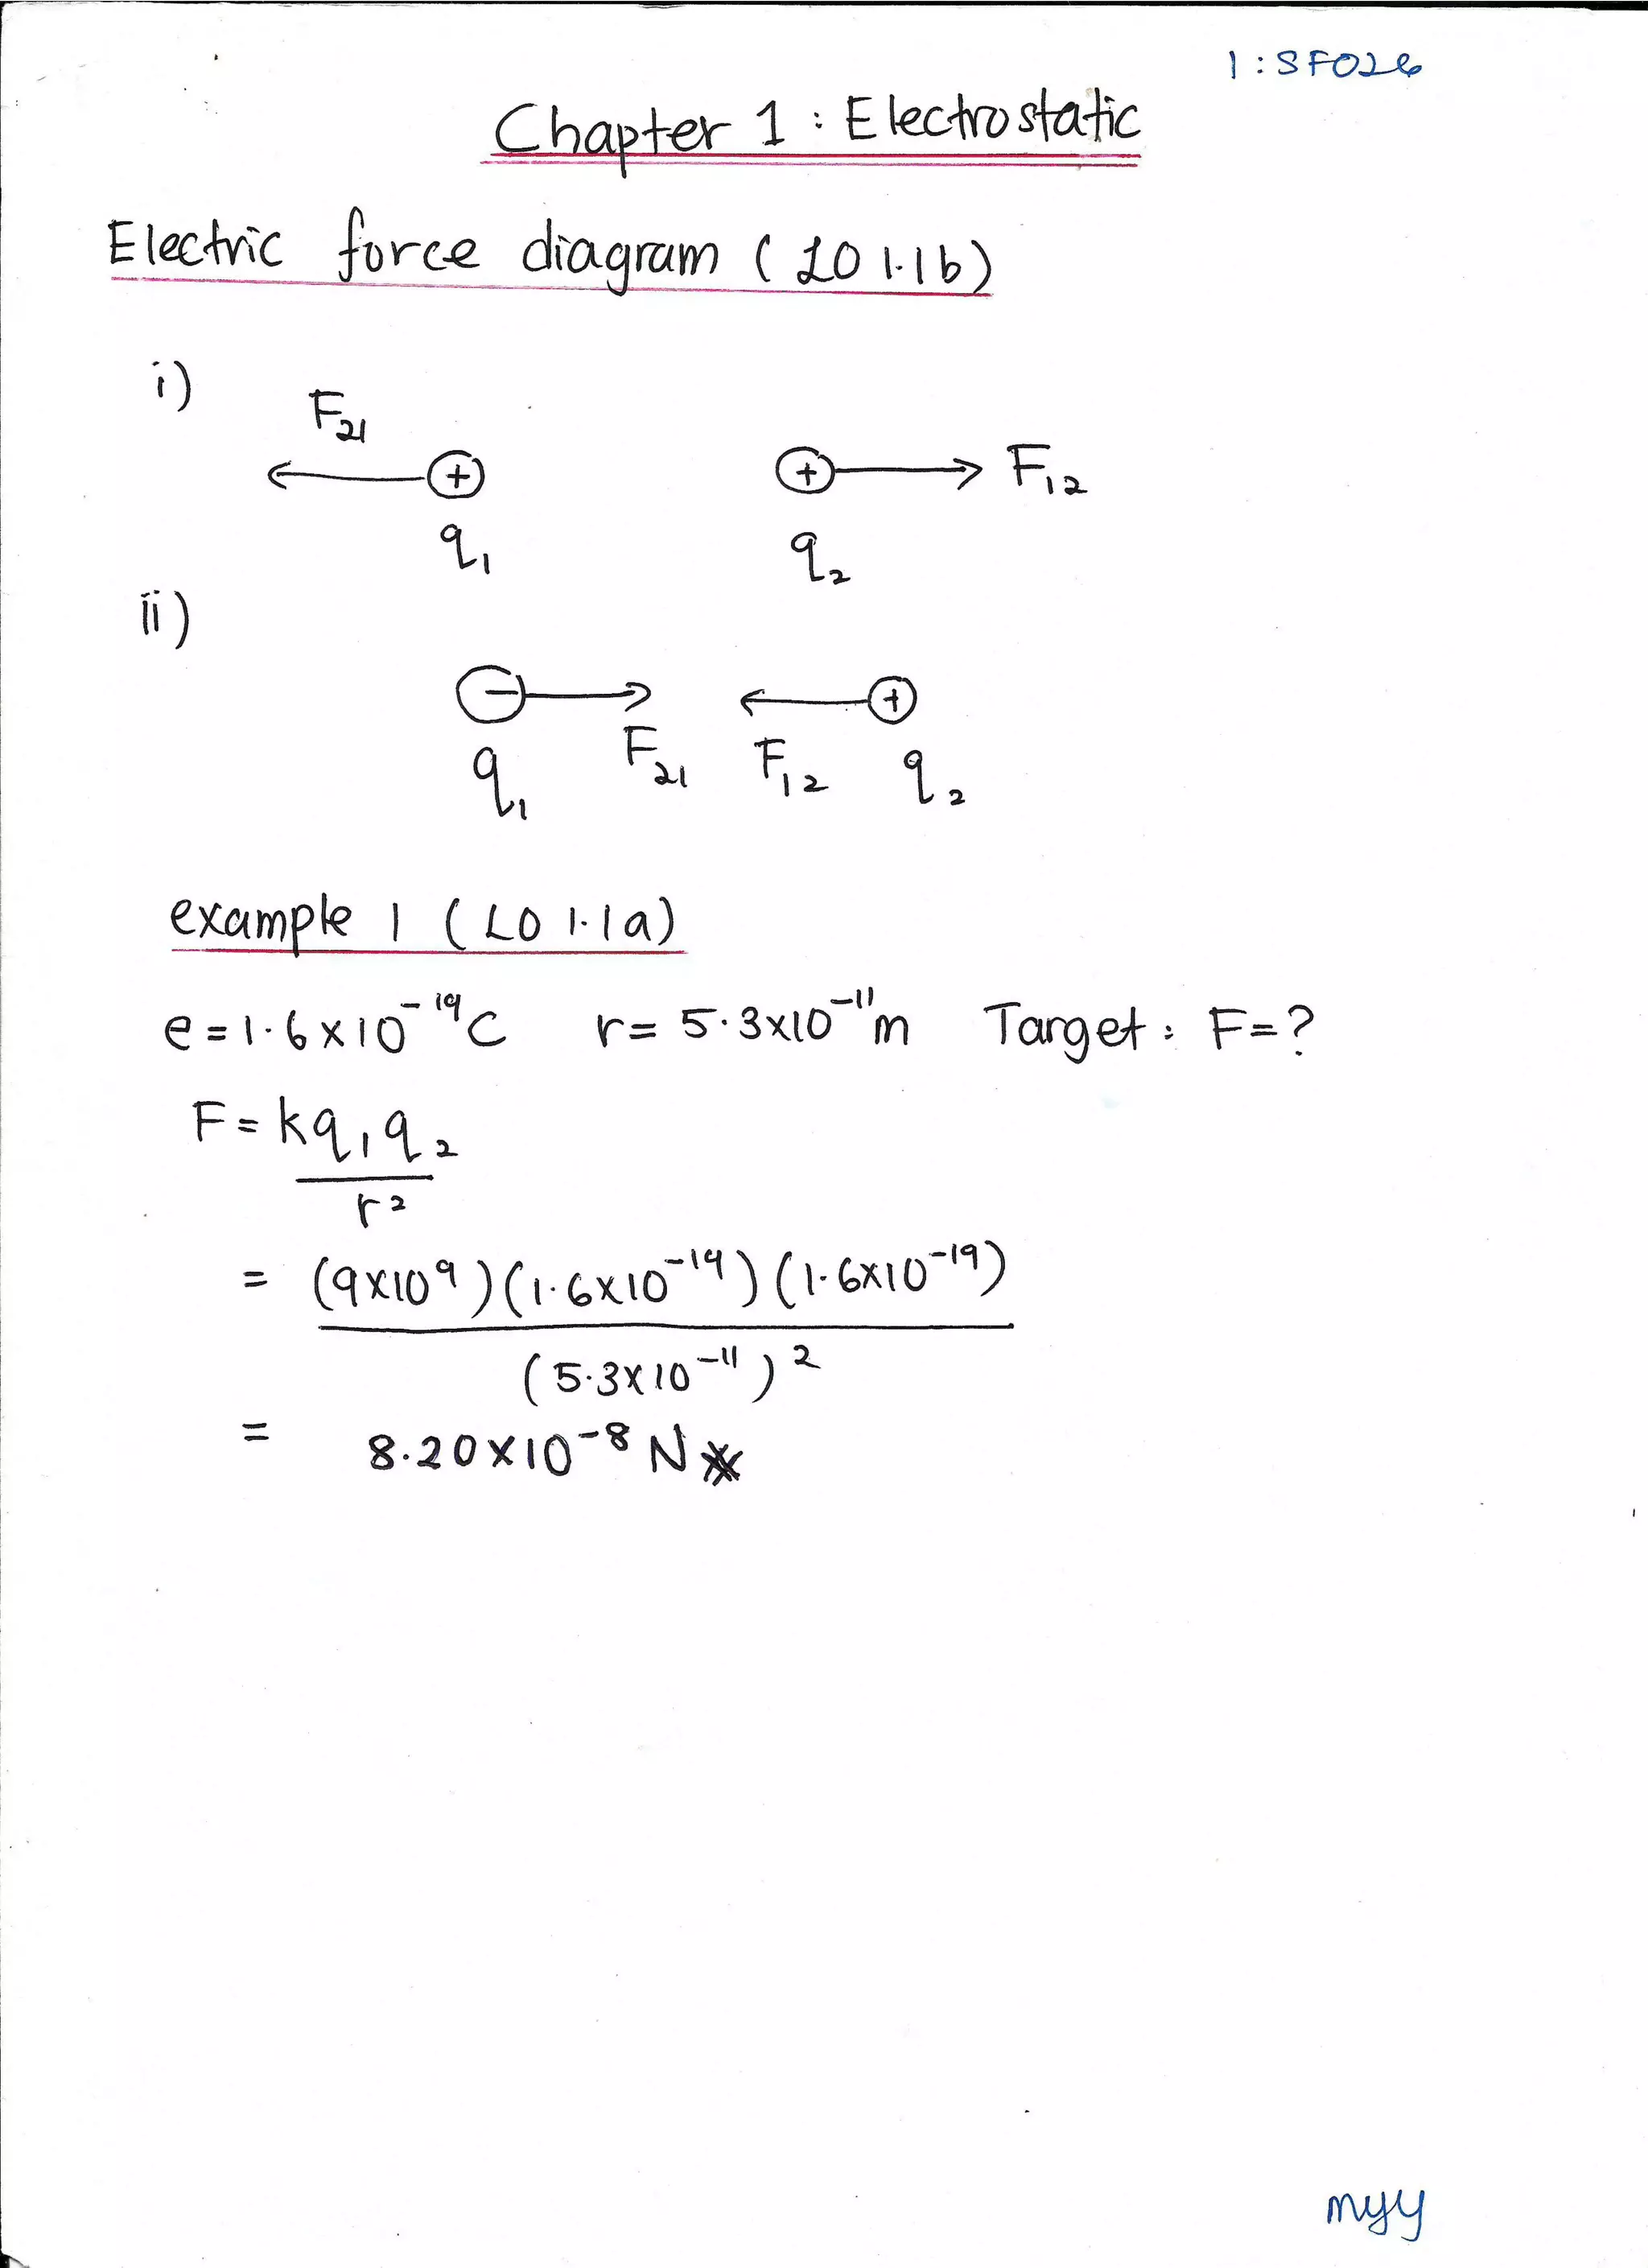 1 : SF026
Chapter 1 : Electrostatic
Electric force diagram ( LO 1.1b)
i)
F₂₁
+ + F₁₂
q₁ q₂
ii)
− +
q₁ F₂₁ F₁₂ q₂
example 1 ( LO 1.1a)
e = 1.6 x 10⁻¹⁹ C r = 5.3x10⁻¹¹ m Target : F = ?
F = kq₁q₂
r²
= (9x10⁹)(1.6x10⁻¹⁹)(1.6x10⁻¹⁹)
(5.3x10⁻¹¹)²
= 8.20x10⁻⁸ N
myy